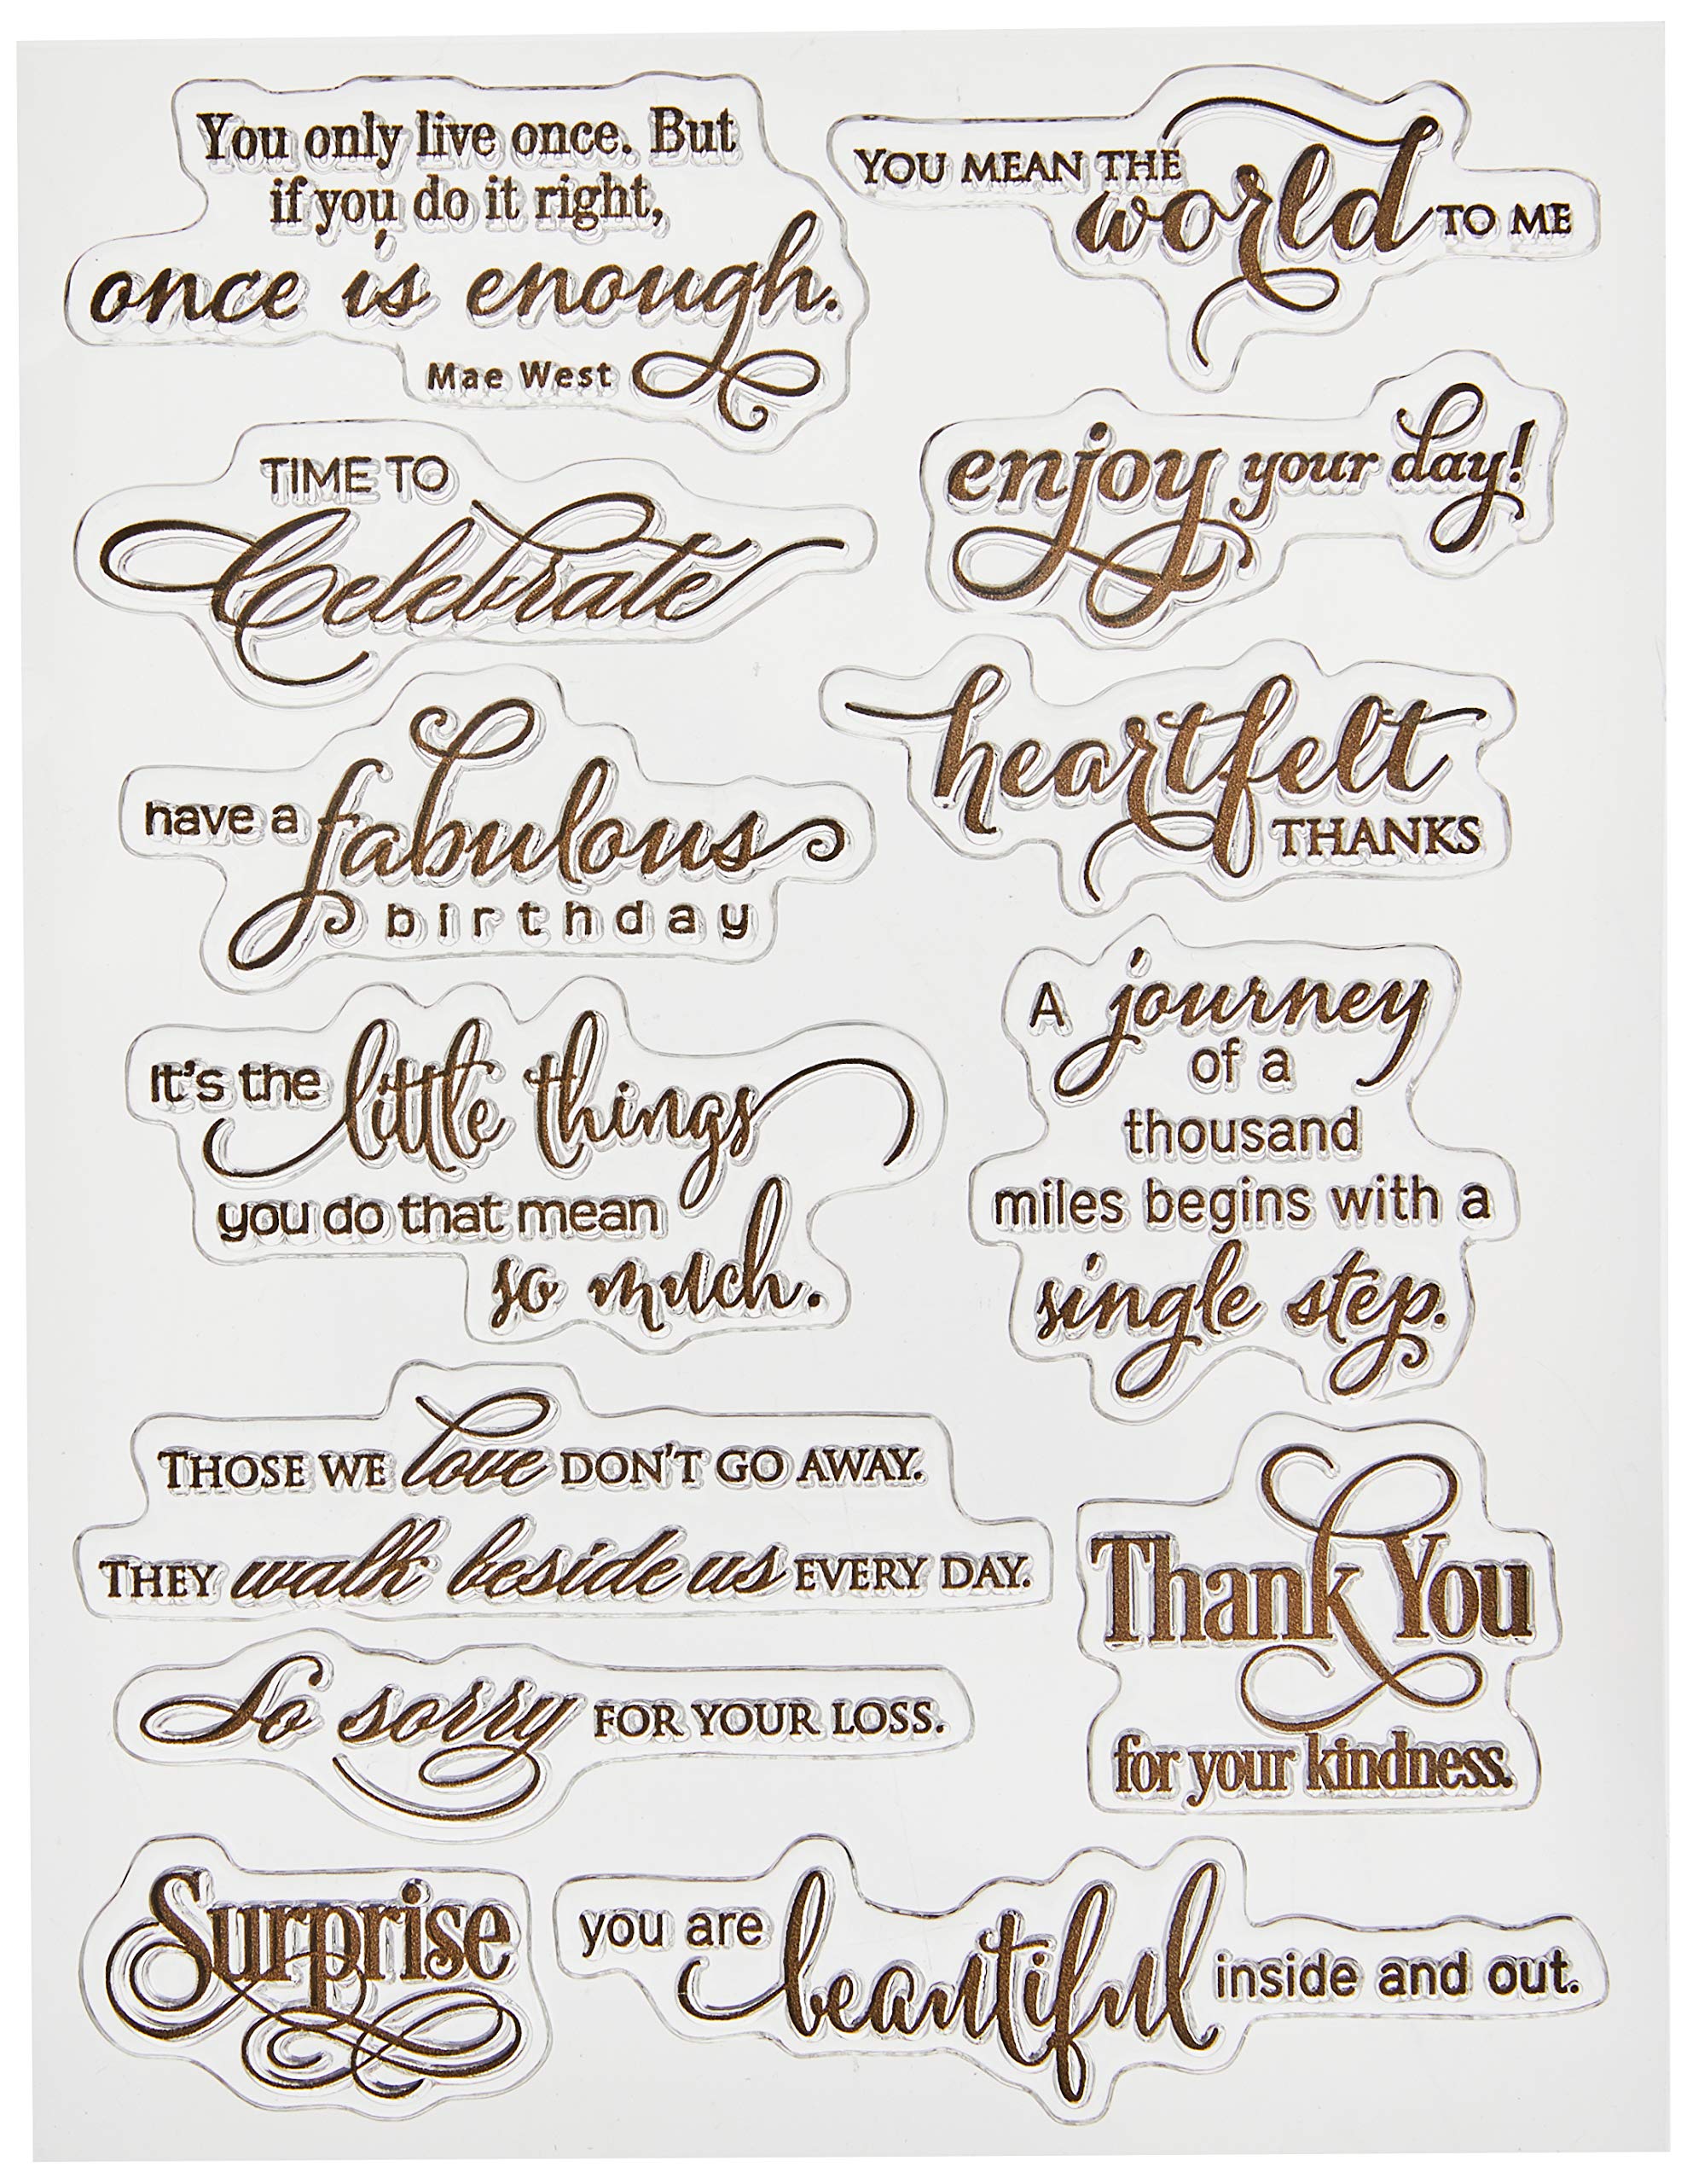 You only live once. But
if you do it right,
once is enough.
Mae West
YOU MEAN THE
world TO ME
TIME TO
Celebrate
enjoy your day!
have a fabulous
birthday
heartfelt
THANKS
It's the little things
you do that mean
so much.
A journey
of a
thousand
miles begins with a
single step.
THOSE WE love DON'T GO AWAY.
THEY walk beside us EVERY DAY.
Thank You
for your kindness.
So sorry FOR YOUR LOSS.
Surprise
you are beautiful inside and out.